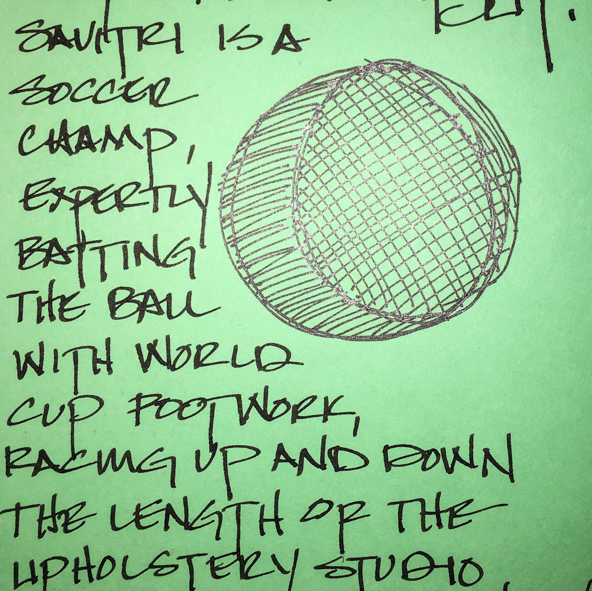 SAVITRI IS A
SOCCER
CHAMP,
EXPERTLY
BATTING
THE BALL
WITH WORLD
CUP FOOTWORK,
RACING UP AND DOWN
THE LENGTH OF THE
UPHOLSTERY STUDIO,